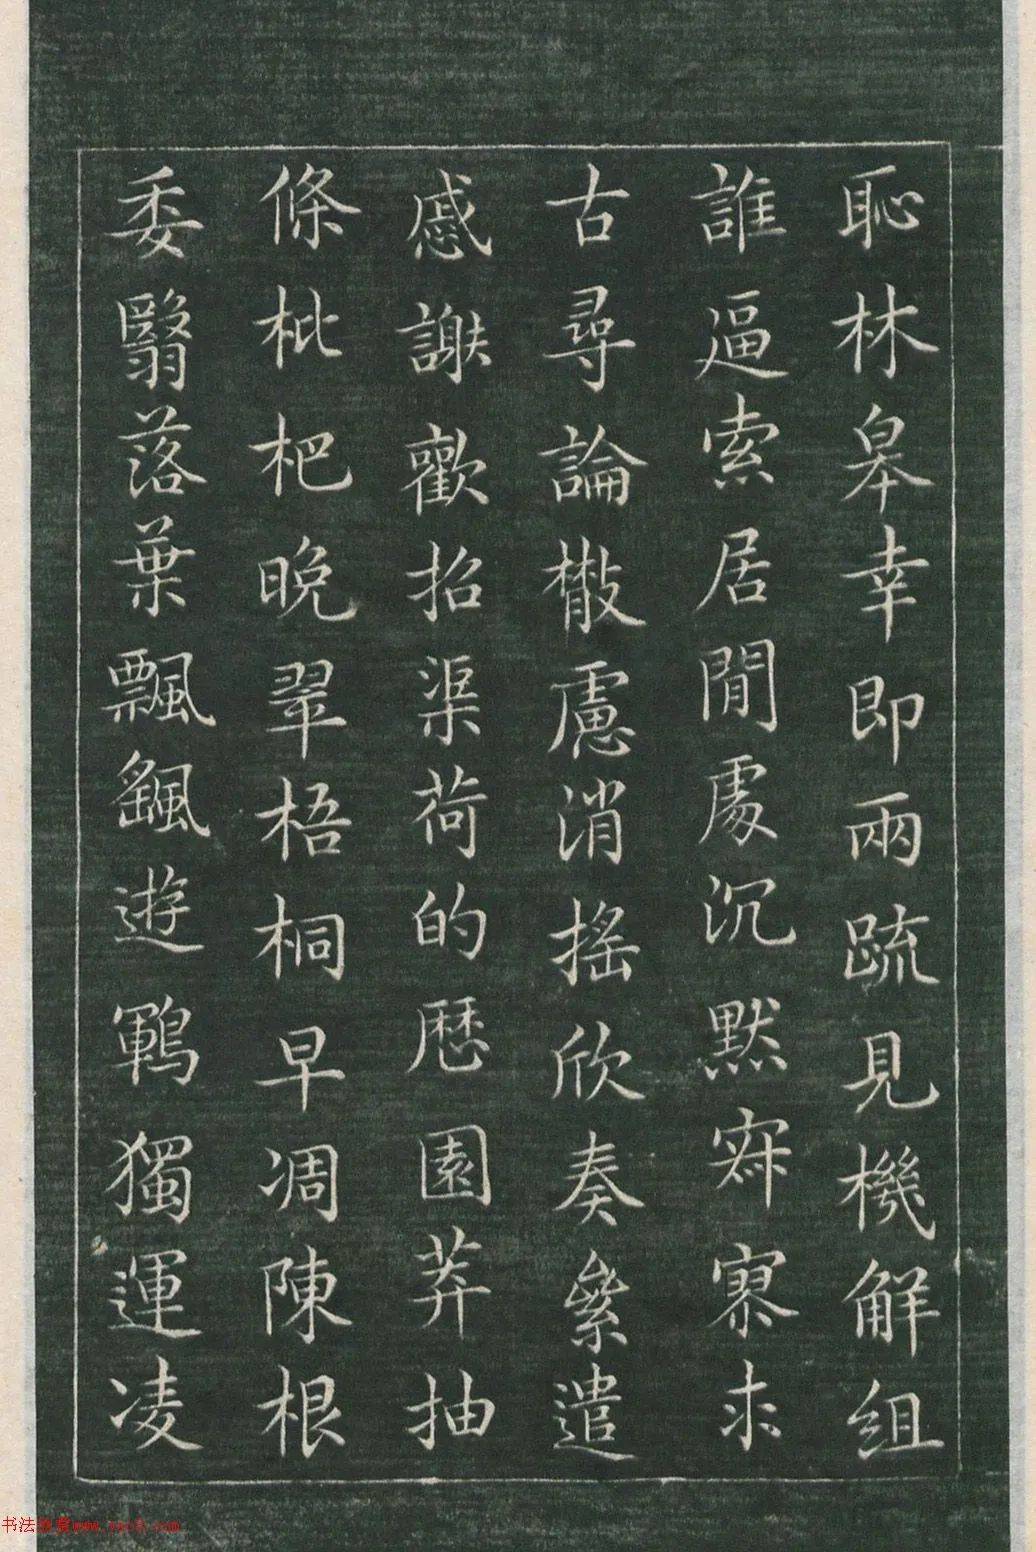 恥林皋幸即兩疏見機解組
誰逼索居閒處沉默寂寥求
古尋論散慮消搖欣奏縈遣
慼謝歡招渠荷的歷園莽抽
條枇杷晚翠梧桐早凋陳根
委翳落葉飄颻遊鵾獨運凌